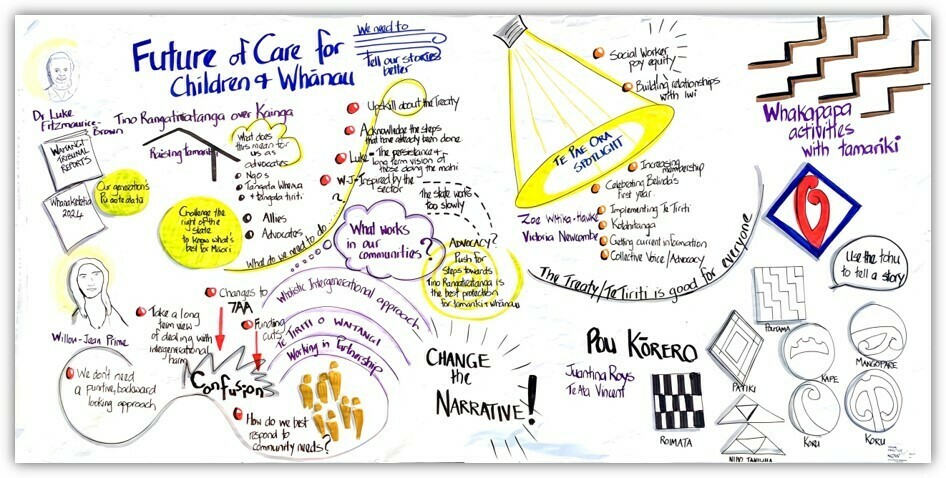 Future of Care for
Children & Whānau
We need to
tell our stories
better
Dr Luke
Fitzmaurice-
Brown
Tino Rangatiratanga over Kainga
WAITANGI
TRIBUNAL
REPORTS
Raising tamariki
What does
this mean for
us as
advocates
NGOs
Tangata Whenua
+ tangata tiriti
Allies
Advocates
Our generation's
Pū ao te ata tū
2024
Challenge the
right of the
State
to know what's
best for Māori
What do we need to do?
Upskill about the Treaty
Acknowledge the steps
that have already been done
Luke - The persistence &
long term vision of
those doing the mahi
W-J - Inspired by the
sector
The state works
too slowly
What works
in our
communities?
ADVOCACY?
Push for
steps towards
Tino Rangatiratanga is
the best protection
for tamariki + whānau
Willow-Jean Prime
Changes to
7AA
Take a long
term view
of dealing with
intergenerational
harm
Funding
cuts
Confusion
We don't need
a punitive, backward
looking approach
How do we best
respond to
community needs?
Wholistic Intergenerational approach
Te TIRITI O WAITANGI
Working in Partnership
CHANGE
the
NARRATIVE!
Social Worker
pay equity
Building relationships
with iwi
TE PAE ORA
SPOTLIGHT
Increasing
membership
Celebrating Belinda's
first year
Implementing Te Tiriti
Kotahitanga
Getting current information
Collective Voice/Advocacy
Victoria Newcombe
The Treaty/Te Tiriti is good for everyone
Whakapapa
activities
with tamariki
Use the tohu
to tell a story
POU KŌRERO
Juanina Roys
Te Ata Vincent
ROIMATA
POUTAMA
PATIKI
KAPE
MANGOPARE
NIHO TANIWHA
KORU
KORU